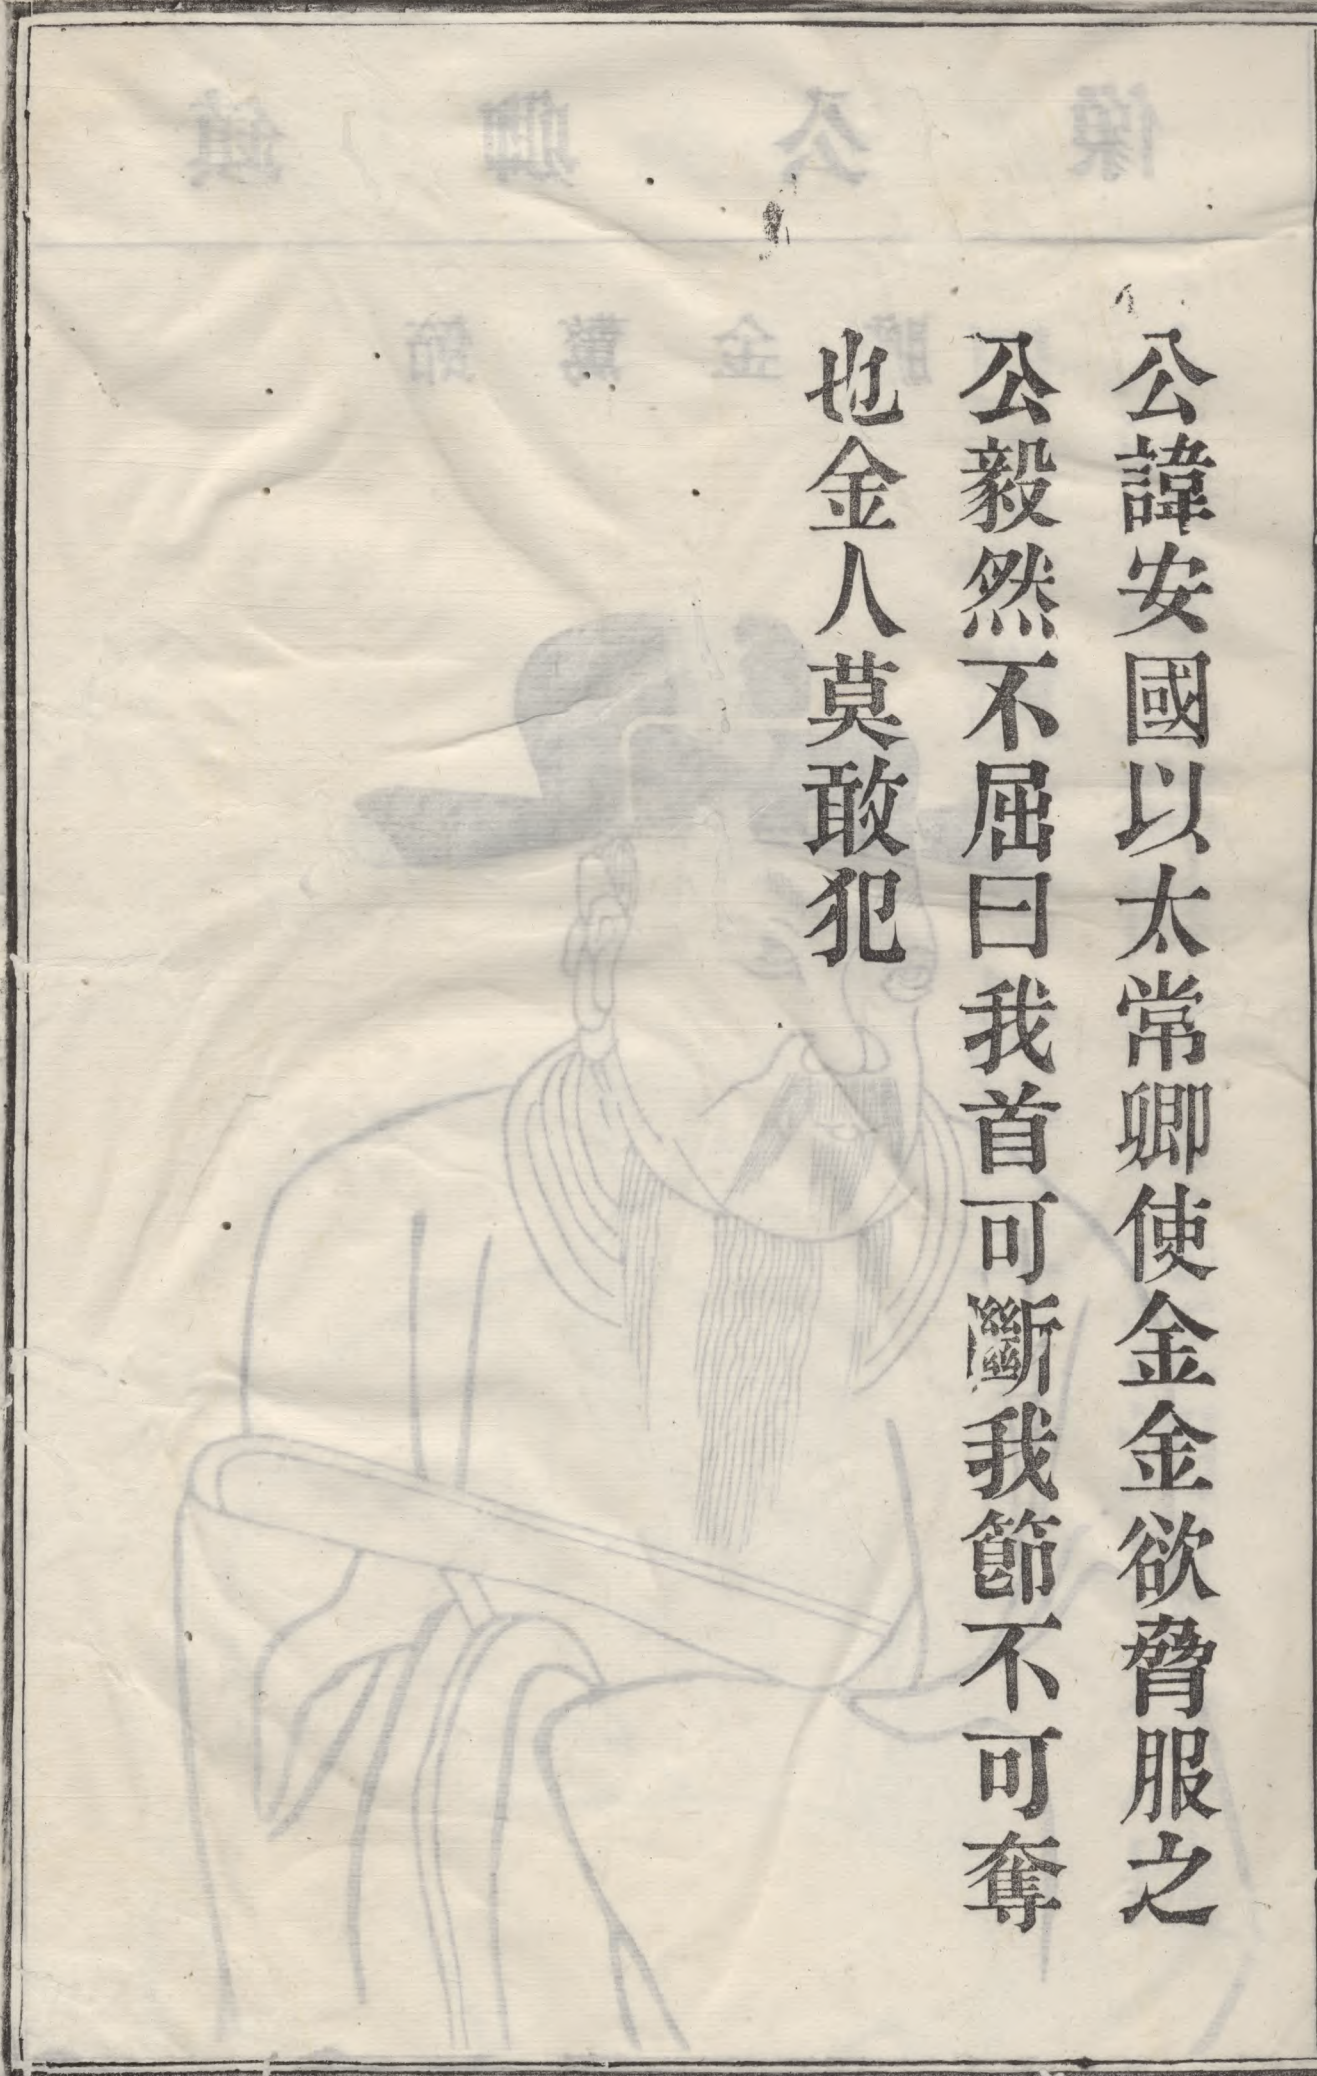 公諱安國以太常卿使金金欲脅服之
公毅然不屈曰我首可斷我節不可奪
也金人莫敢犯